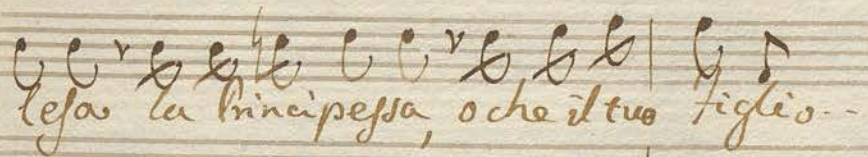 lesa la Principessa, o che il tuo figlio--